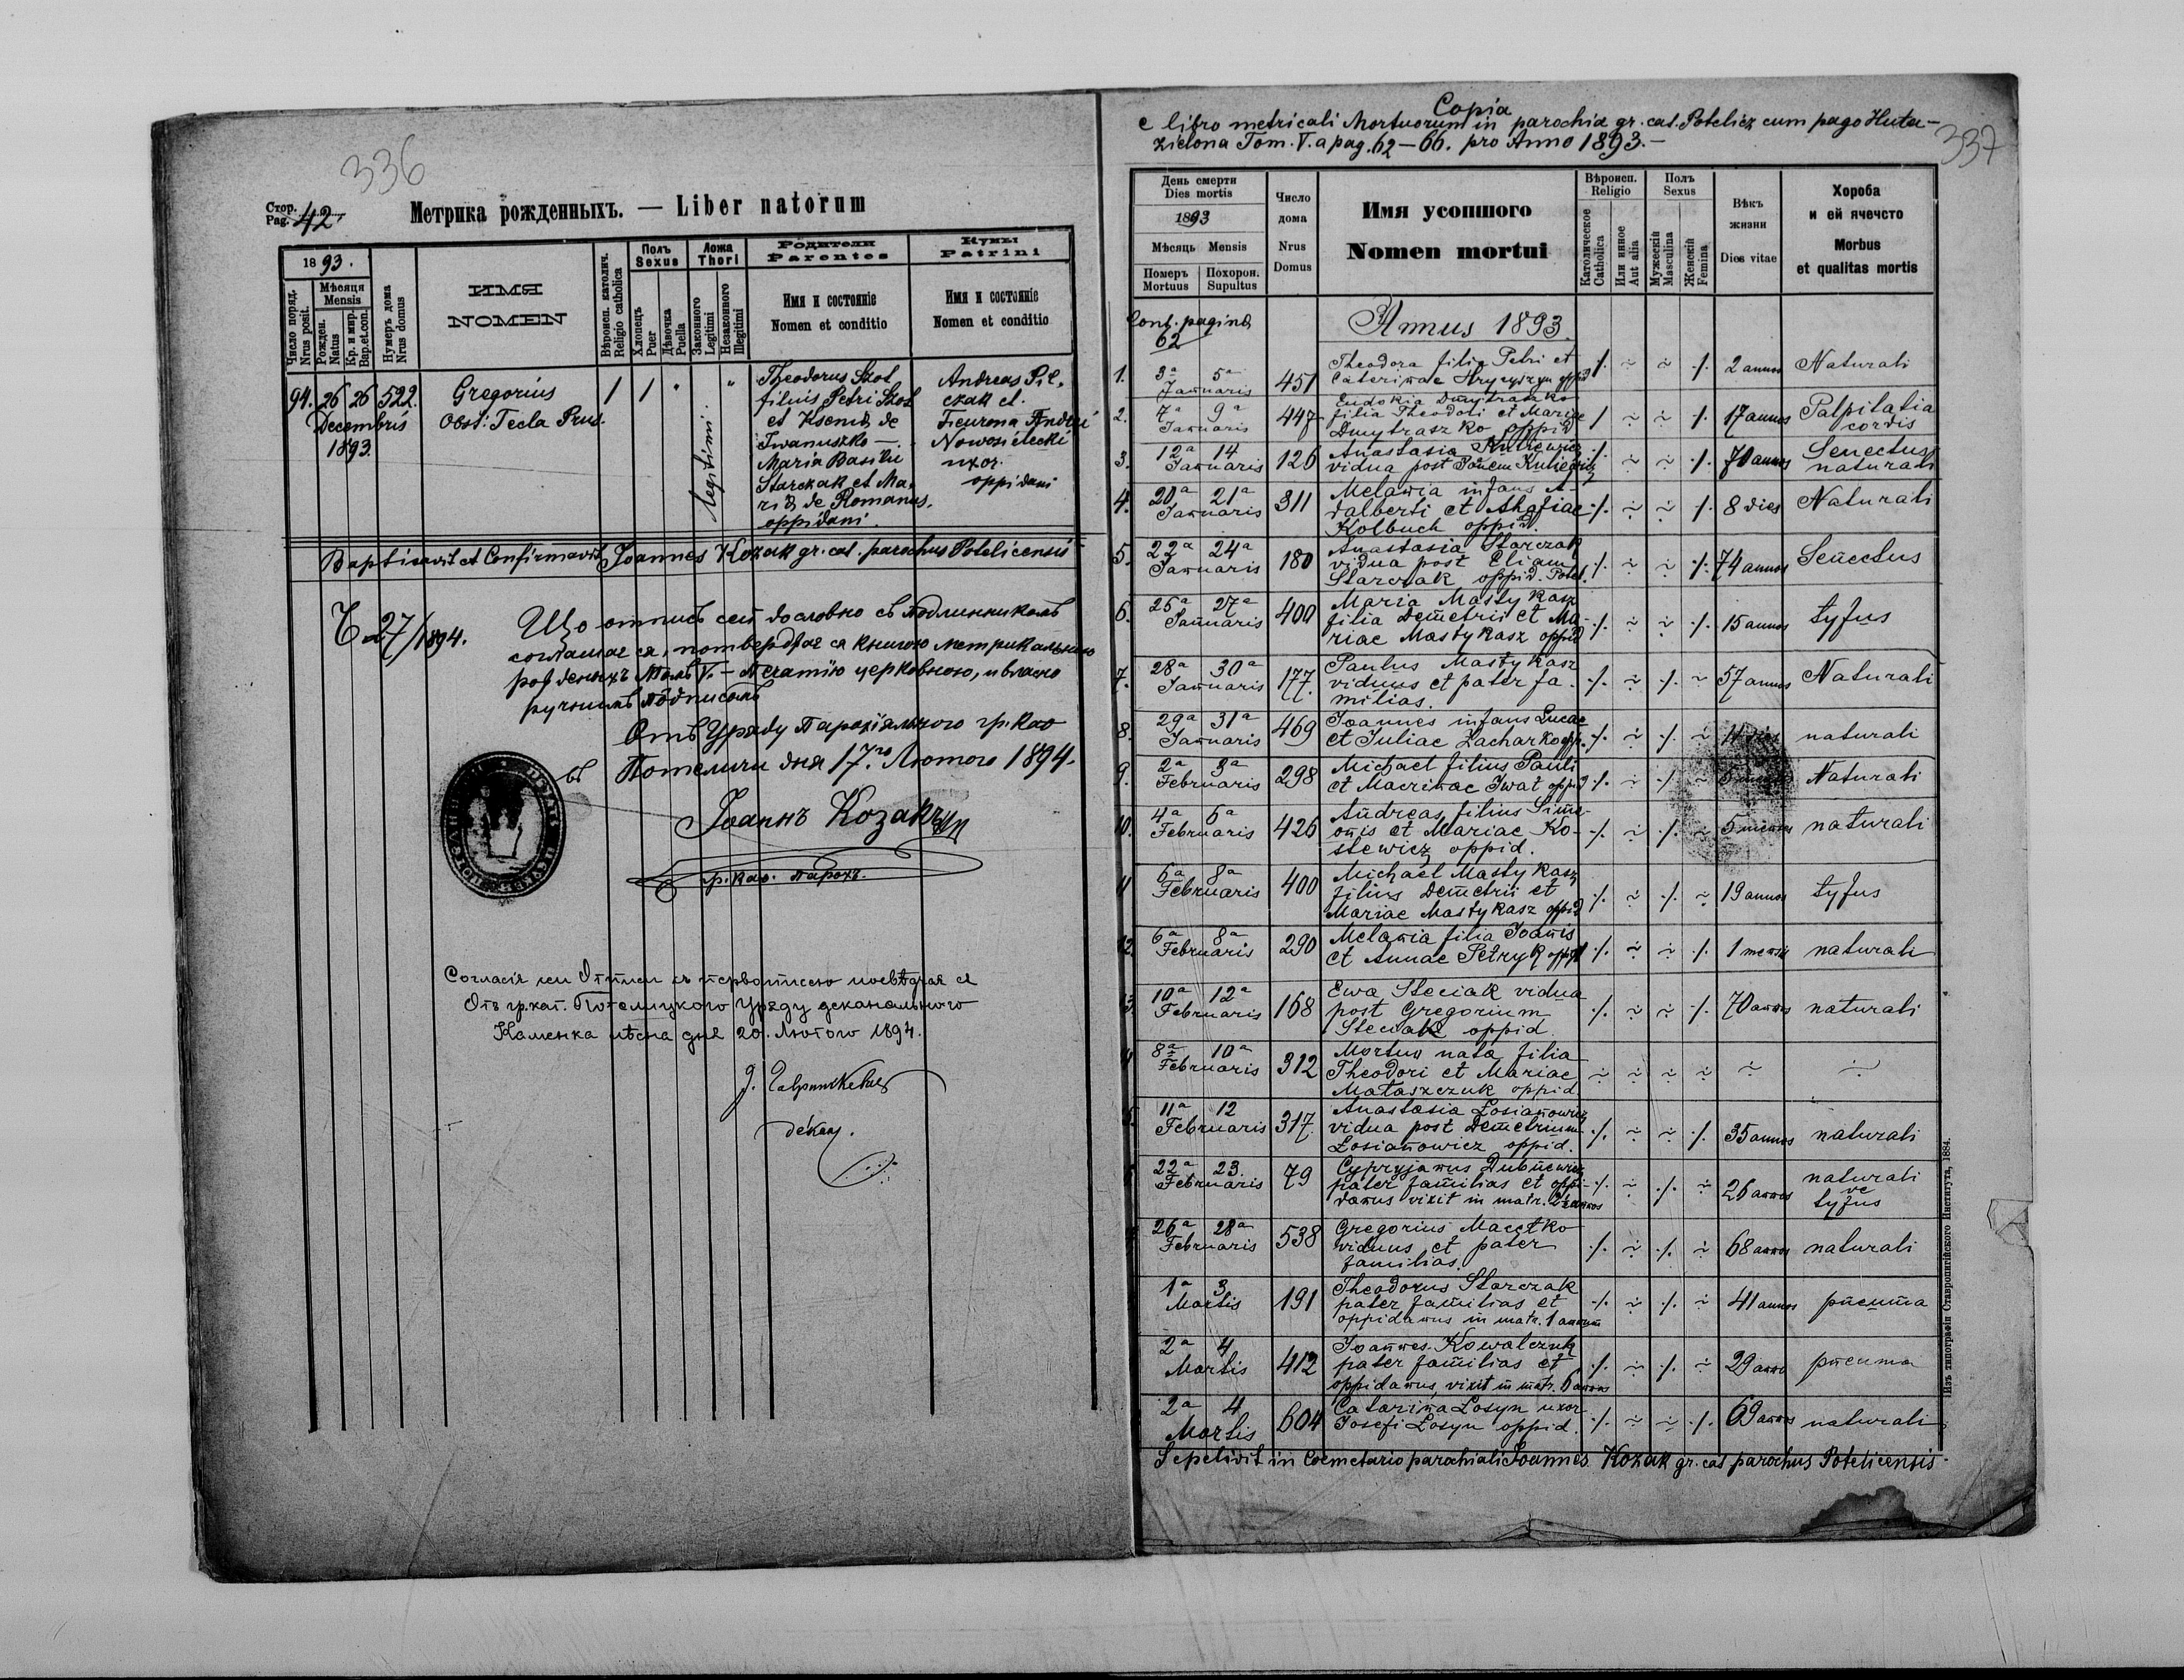 336
Стор.
Pag. 42.
Метрика рожденныхъ. — Liber natorum
1893.
Число поряд.
Nrus posit.
Мѣсяця
Mensis
Рожден.
Natus
Кр. и мир.
Bap.et.con.
Нумеръ дома
Nrus domus
ИМЯ
NOMEN
Вѣроисп. католич.
Religio catholica
Полъ
Sexus
Хлопецъ
Puer
Дѣвочка
Puella
Ложа
Thori
Законного
Legitimi
Незаконного
Illegitimi
Родители
Parentes
Имя и состоянiе
Nomen et conditio
Кумы
Patrini
Имя и состоянiе
Nomen et conditio
94. 26 26 522. Gregorius 1 1 " Legitimi "
Decembris
1893.
Obst: Tecla Prus.
Theodorus Szot
filius Petri Szot
et Ksenia de
Iwanuszko —.
Maria Basilii
Starczak et Ma-
ria de Romanus.
oppidani.
Andreas Pil-
czak et.
Fieurona Andrei
Nowosielecki
uxor.
oppidani
Baptisavit et Confirmavit Joannes Kozak gr. cat. parochus Potelicensis
Ч 27/1894.
Що отписъ сей дословно съ подлинникомъ
согладжає ся, потверджає ся книгою метрикальною
рожденыхъ Томъ V. — Печатію церковною, и власно
ручнымъ подписомъ
Отъ Уряду Парохіяльного гр. кат
въ Потеличи дня 17го Лютого 1894.
Іоаннъ Козакъ
гр. кат. парохъ.
Согласіє сеи Отписи съ первописею посвѣдчає ся
Отъ гр. кат. Потелицкого Уряду деканального
Каменка лѣсна дня 20. Лютого 1894.
декан.
337
Copia
e libro metricali Mortuorum in parochia gr. cat. Potelicz cum pago Huta-
zielona Tom. V. a pag. 62 — 66. pro Anno 1893. —
День смерти
Dies mortis
1893
Мѣсяць Mensis
Померъ
Mortuus
Похорон.
Supultus
Число
дома
Nrus
Domus
Имя усопшого
Nomen mortui
Вѣроисп.
Religio
Католическое
Catholica
Или инное
Aut alia
Полъ
Sexus
Мужескій
Masculina
Женскій
Femina
Вѣкъ
жизни
Dies vitae
Хороба
и ей ячечсто
Morbus
et qualitas mortis
Cont. pagina
62
Annus 1893.
1. 3a 5a Januaris 451 Theodora filia Petri et
Caterinae Hrycyszyn oppid 2 annos Naturali
2. 7a 9a Januaris 447 Eudokia Dmytraszko
filia Theodori et Mariae
Dmytraszko oppid 17 annos Palpitatia
cordis
3. 12a 14 Januaris 126 Anastasia
vidua post 70 annos Senectus
naturali
4. 20a 21a Januaris 311 Melania infans A-
dalberti et Ahafiae
Kolbuch oppid. 8 dies Naturali
5. 22a 24a Januaris 180 Anastasia Starczak
vidua post Eliam
Starczak oppid. Potel. 74 annos Senectus
6. 25a 27a Januaris 400 Maria Mastykasz
filia Demetrii et Ma-
riae Mastykasz oppid 15 annos tyfus
7. 28a 30a Januaris 177. Paulus Mastykasz
viduus et pater fa-
milias. 57 annos Naturali
8. 29a 31a Januaris 469 Joannes infans Lucae
et Juliae Zacharko opp. naturali
9. 2a 3a Februaris 298 Michael filius Pauli
et Macrinae Iwat oppid Naturali
10. 4a 6a Februaris 426 Andreas filius Sime-
onis et Mariae Ko-
stewicz oppid. 5 menses naturali
11 6a 8a Februaris 400 Michael Mastykasz
filius Demetrii et
Mariae Mastykasz oppid 19 annos tyfus
12. 6a 8a Februaris 290 Melania filia Joannis
et Annae Petryk oppid 1 mensis naturali
13. 10a 12a Februaris 168 Ewa Steciak vidua
post Gregorium
Steciak oppid. 70 annos naturali
8a 10a Februaris 312 Mortuo nata filia
Theodori et Mariae
Mataszczuk oppid
11a 12 Februaris 317. Anastasia Łosianowicz
vidua post Demetrium
Łosianowicz oppid. 35 annos naturali
22a 23. Februaris 79 Cypryjanus Dubniewicz
pater familias et oppi-
danus vixit in matr. 2 annos 26 annos naturali
ve
tyfus
26a 28a Februaris 538 Gregorius Macetko
viduus et pater
familias. 68 annos naturali
1a 3 Martis 191 Theodorus Starczak
pater familias et
oppidanus in matr. 1 annum 41 annos pneuma
2a 4 Martis 412 Joannes Kowalczuk
pater familias et
oppidanus, vixit in matr. 6 annos 29 annos pneuma
2a 4 Martis 604 Catarina Losyn uxor
Josefi Losyn oppid. 69 annos naturali
Sepelivit in Coemetario parochiali Joannes Kozak gr. cat parochus Potelicensis.
Изъ типографіи Ставропигійского Института, 1884.